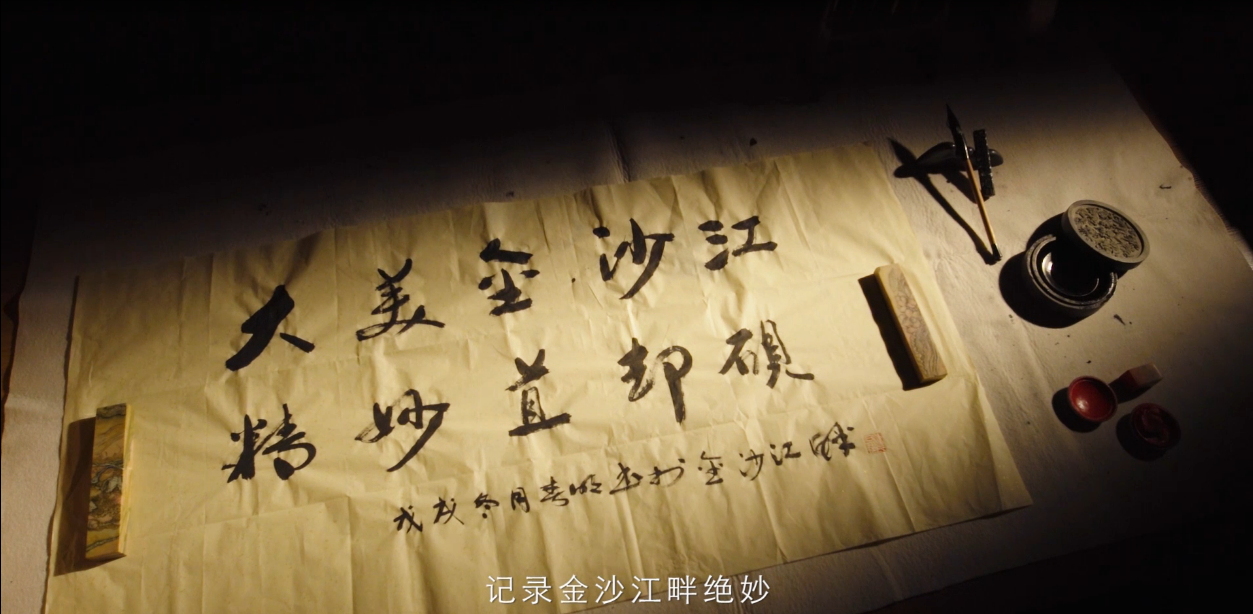 大美金沙江
精妙苴却砚
戊戌冬月春明书于金沙江畔
记录金沙江畔绝妙